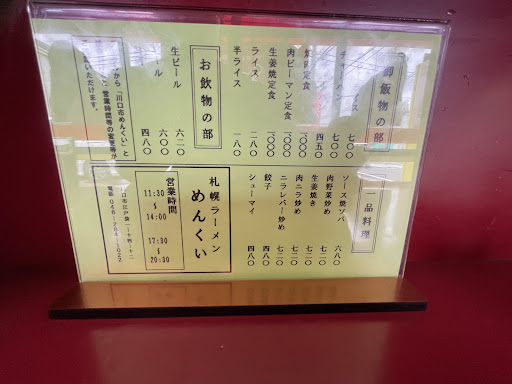 御飯物の部
七〇〇
チャーハン 七〇〇
ライス 四五〇
焼肉定食 一、〇〇〇
肉ピーマン定食 一、〇〇〇
生姜焼定食 一、〇〇〇
ライス 二八〇
半ライス 一八〇
お飲物の部
生ビール 六二〇
ビール 六〇〇
四八〇
から「川口市めんくい」と
営業時間等の変更等が
いただけます。
一品料理
ソース焼ソバ 六八〇
肉野菜炒め 七二〇
生姜焼き 七二〇
肉ニラ炒め 七二〇
ニラレバー炒め 七二〇
餃子 四八〇
シューマイ 四八〇
札幌ラーメン
めんくい
営業時間
11:30
～
14:00
17:30
～
20:30
川口市江戸袋一ー十四ー十二
電話 048-284-1022